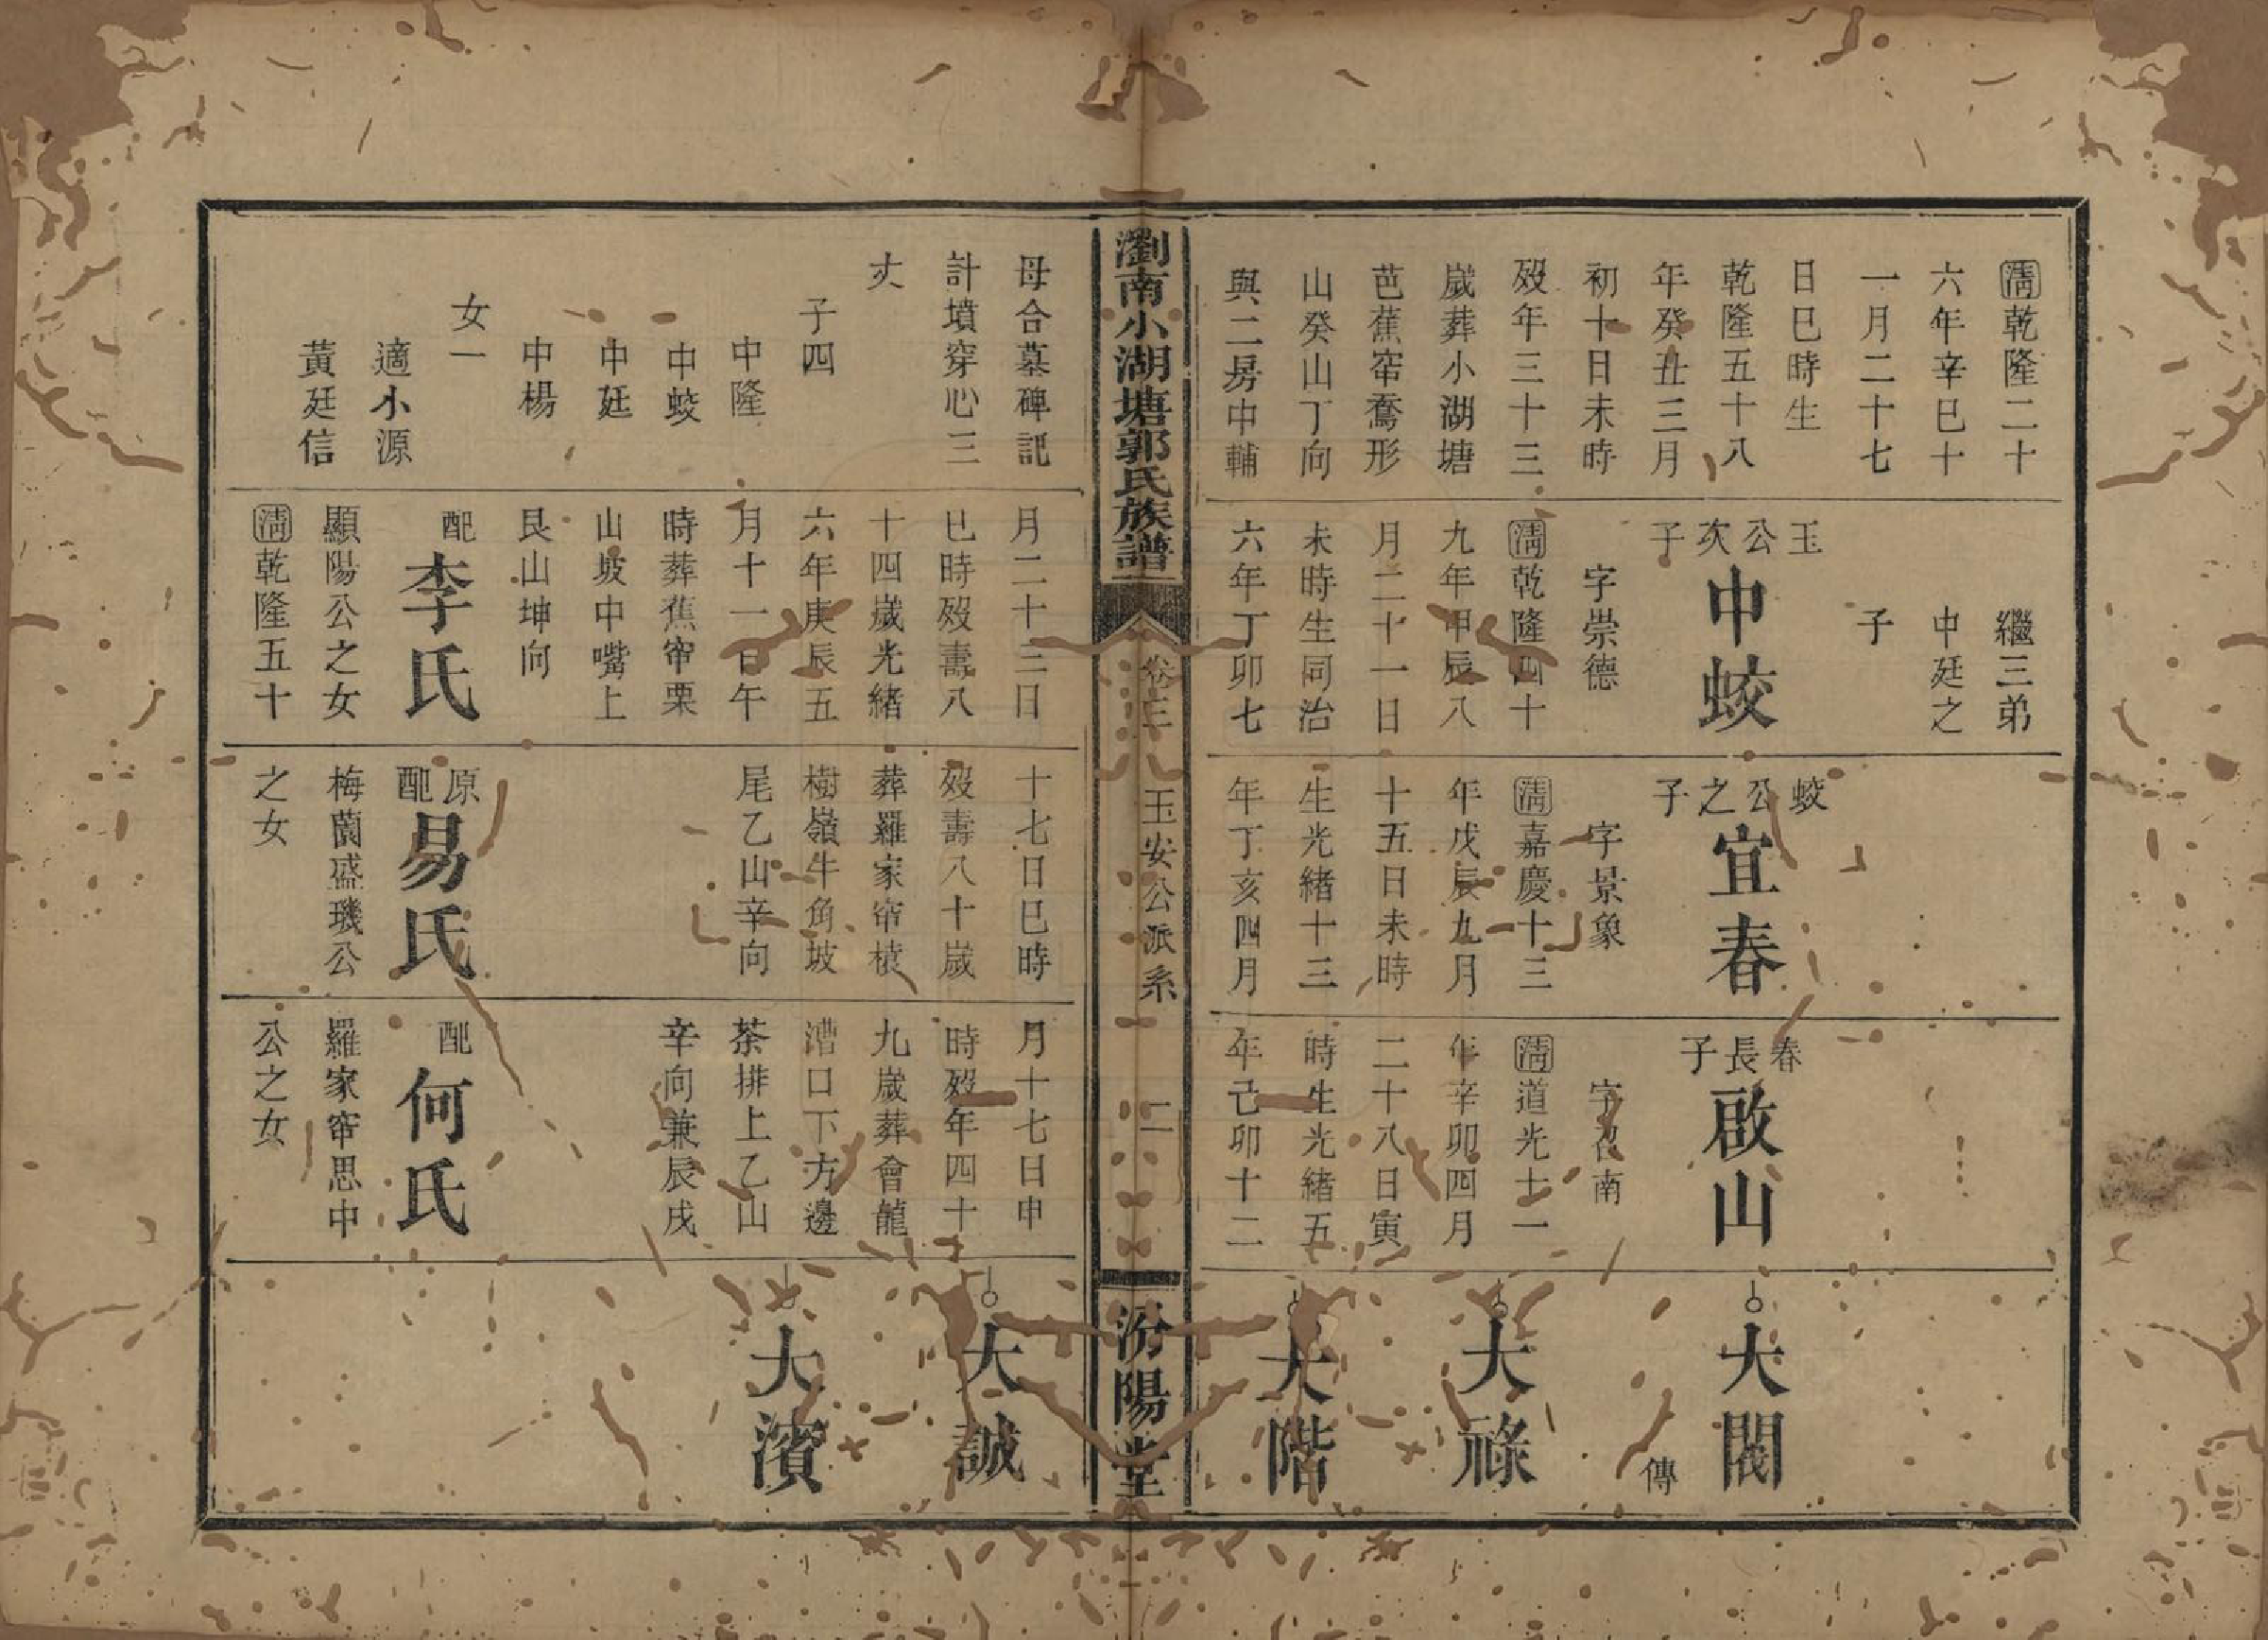 清乾隆二十
六年辛巳十
一月二十七
日巳時生
乾隆五十八
年癸丑三月
初十日未時
歿年三十三
歲葬小湖塘
芭蕉窂鶱形
山癸山丁向
與二房中輔
繼三弟
中廷之
子
玉公次子
中蛟
字崇德
清乾隆四十
九年甲辰八
月二十一日
未時生同治
六年丁卯七
蛟公之子
宜春
字景象
清嘉慶十三
年戊辰九月
十五日未時
生光緒十三
年丁亥四月
春長子
啟山
字召南
清道光十一
年辛卯四月
二十八日寅
時生光緒五
年己卯十二
大閣
傳
大祿
大階
瀏南小湖塘郭氏族譜
卷三
玉安公派系
二
汾陽堂
母合墓碑記
計墳穿心三
丈
子四
中隆
中蛟
中廷
中楊
女一
適小源
黃廷信
月二十三日
巳時歿壽八
十四歲光緒
六年庚辰五
月十一日午
時葬蕉窂栗
山坡中嘴上
艮山坤向
配
李氏
顯陽公之女
清乾隆五十
十七日巳時
歿壽八十歲
葬羅家窂樻
樹嶺牛角坡
尾乙山辛向
原配
易氏
梅蘭盛璣公
之女
月十七日申
時歿年四十
九歲葬會龍
漕口下方邊
茶排上乙山
辛向兼辰戌
配
何氏
羅家窂思中
公之女
大誠
大濱